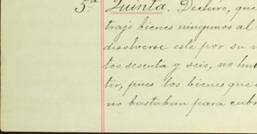 5ª Quinta. Declaro, que
trajó bienes ningunos al
disolverse este por su m
tos sesenta y seis, no hu
tir, pues los bienes que
no bastaban para cubr